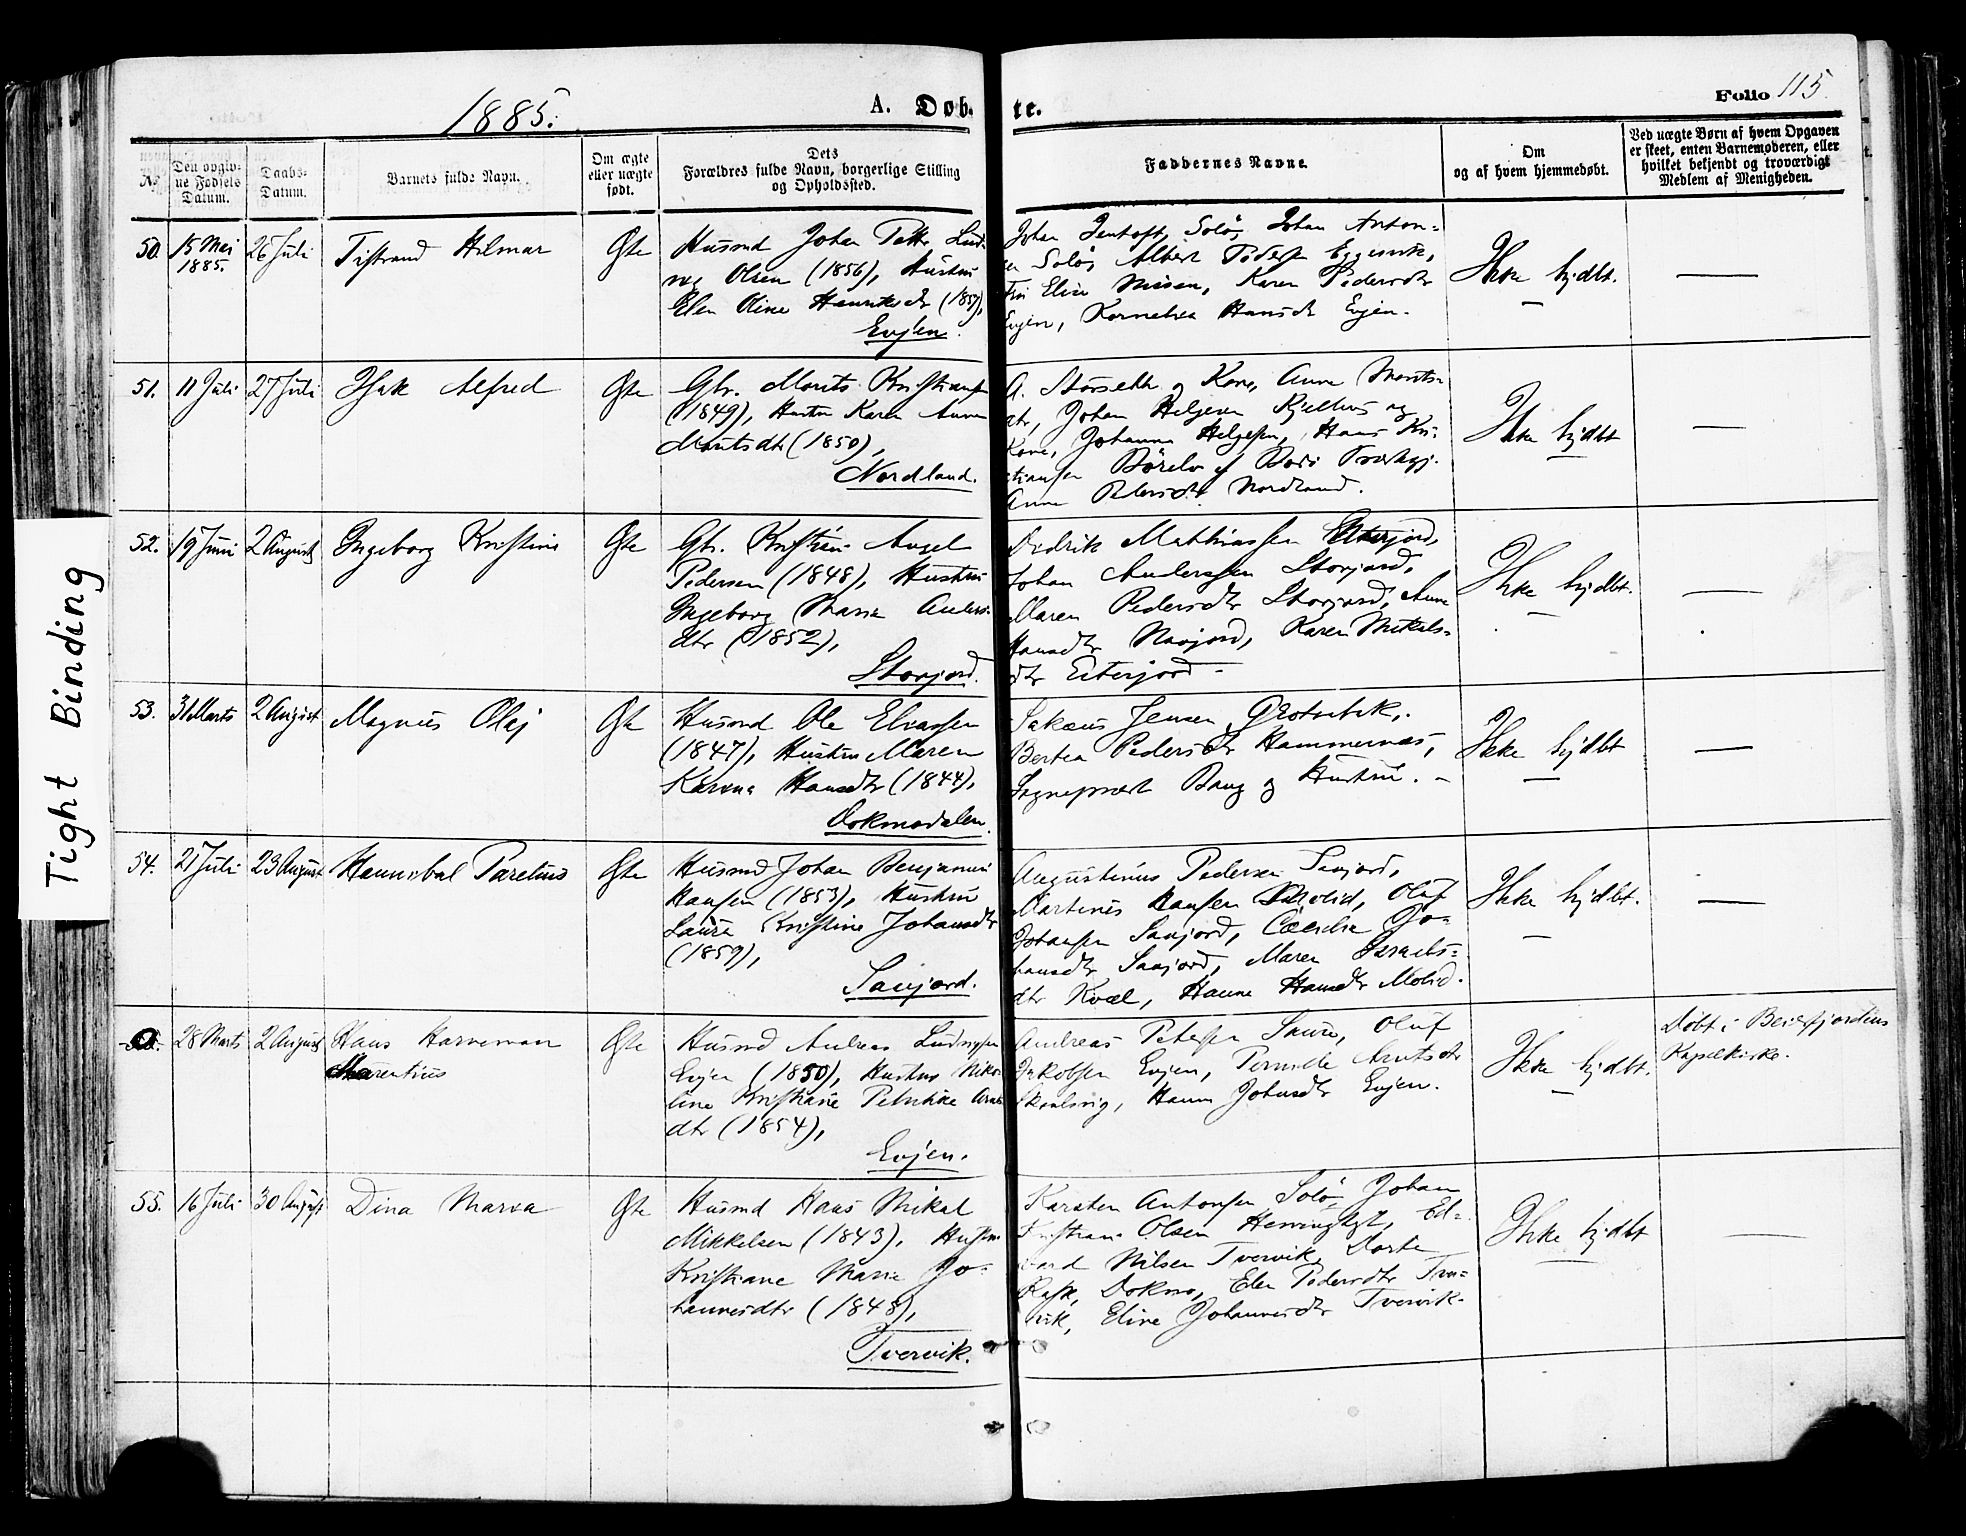 Tight Binding
1885.
A. Døb-
te.
Folio 115.
No.
Den opgiv-
ne Fødsels
Datum.
Daabs-
Datum.
Barnets fulde Navn.
Om ægte
eller uægte
født.
Dets
Forældres fulde Navn, borgerlige Stilling
og Opholdssted.
Faddernes Navne.
Om
og af hvem hjemmedøbt.
Ved uægte Børn af hvem Opgaven
er skeet, enten Barnemoderen, eller
hvilket bekjendt og troværdigt
Medlem af Menigheden.
50.
15 Mai
1885.
26 Juli
Tistrand Hilmar
Ægte
Husmd Johan Petter Lud-
vig Olsen (1856), Hustru
Elen Oline Henriksdtr
Evjen.
Johan Jentoft, Solöi, Johan Anton-
sen Solöi, Albert Peders
Elise Nissen, Karen Pedersdtr
Evjen, Kornelia Hansdtr Evjen.
Ikke hjdbt.
51.
11 Juli
27 Juli
Isak Alfred
Ægte
Gbr. Morits Kristiansen
(1849), Hustru Karen Anna
Moritsdtr (1850),
Nordland.
A. Storseth og Kone, Anne Morits-
dtr, Johan Helgesen og
Kone, Johanna Helgesen, Hans Kri-
stiansen
Anne Pedersdtr Nordland.
Ikke hjdbt
52.
19 Juni
2 August
Ingeborg Kristine
Ægte
Gbr. Kristian Angel
Pedersen (1848), Hustru
Ingeborg Maria Anders-
dtr (1852),
Storjord.
Didrik Mathiassen Eiterjord,
Johan Anderssen Storjord,
Maren Pedersdtr Storjord, Anne
Hansdtr Navjord, Karen Mikals-
dtr Eiterjord
Ikke hjdbt.
53.
31 Marts
2 August
Magnus Olaj
Ægte
Husmd Ole Eliassen
(1847), Hustru Maren
Karena Hansdtr (1844),
Dokmodalen.
Sakæus Jensen Grotvik,
Bertea Pedersdtr Hammernæs,
Sognepræst Bang og Hustru.
Ikke hjdbt
54.
21 Juli
23 August
Hannibal Parelius
Ægte
Husmd Johan Benjamin
Hansen (1853), Hustru
Laura Kristine Johansdtr
(1859),
Savjord.
Augustinus Pedersen Savjord,
Martines Hansen Molid, Oluf
Johansen Savjord, Cecelia Jo-
hansdtr Savjord, Maren Israels-
dtr Kvæl, Hanne Hansdtr Molid.
Ikke hjdbt.
0.
28 Marts
2 August
Hans Harreman
Laurentius
Ægte
Husmd Andreas Ludvigsen
Evjen (1850), Hustru Niko-
line Kristiane Petrikke Arnts
dtr (1854),
Evjen.
Andreas Petersen Saura, Oluf
Jakobsen Evjen, Pernille Arntsdtr
Skaalsvig, Hanna Johnsdtr Evjen.
Ikke hjdbt.
Døbt i Beierfjordens
Kapelkirke.
55.
16 Juli
30 August
Dina Marea
Ægte
Husmd Hans Mikal
Mikkelsen (1843), Hustru
Kristiane Marie Jo-
hannesdtr (1848),
Tvervik.
Karsten Antonsen Solöi, Johan
Kristian Olsen Ed-
vard Nilsen Tvervik, Dorte
Rask, Dokmo, Elen Pedersdtr Tver-
vik, Eline Johannesdtr Tvervik.
Ikke hjdbt